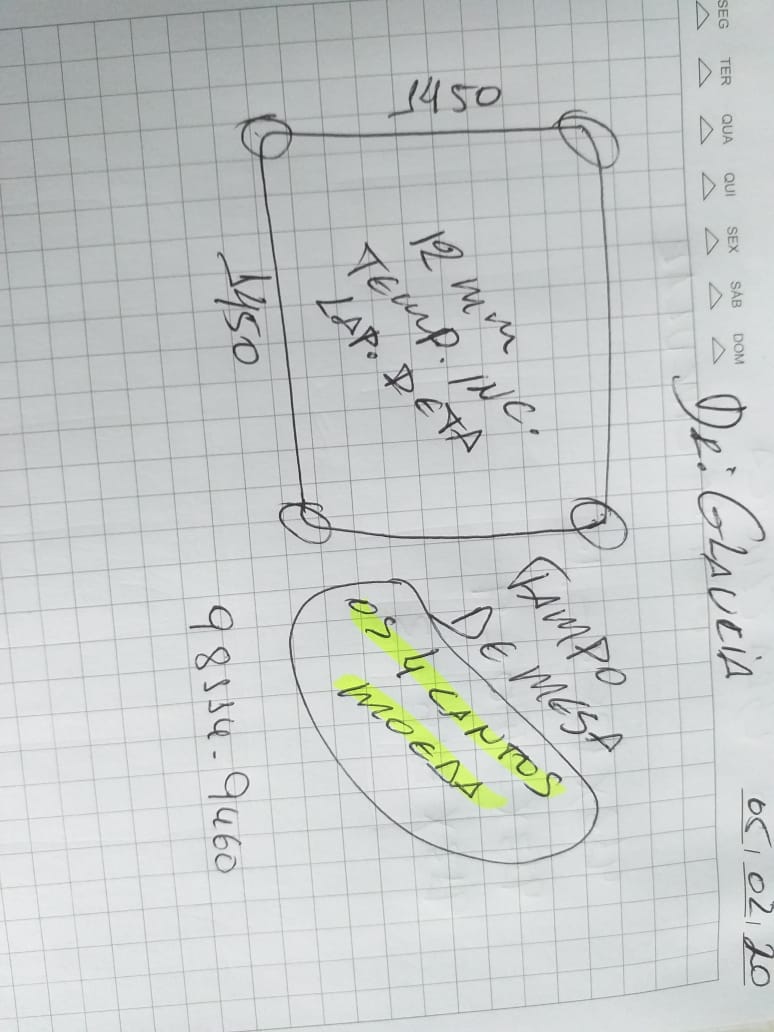 SEG TER QUA QUI SEX SÁB DOM
05/02/20
Dr: GLAUCIA
TAMPO
DE MESA
1450
12 mm
TEMP. INC.
LAP. RETA
1450
OS 4 CANTOS
MOEDA